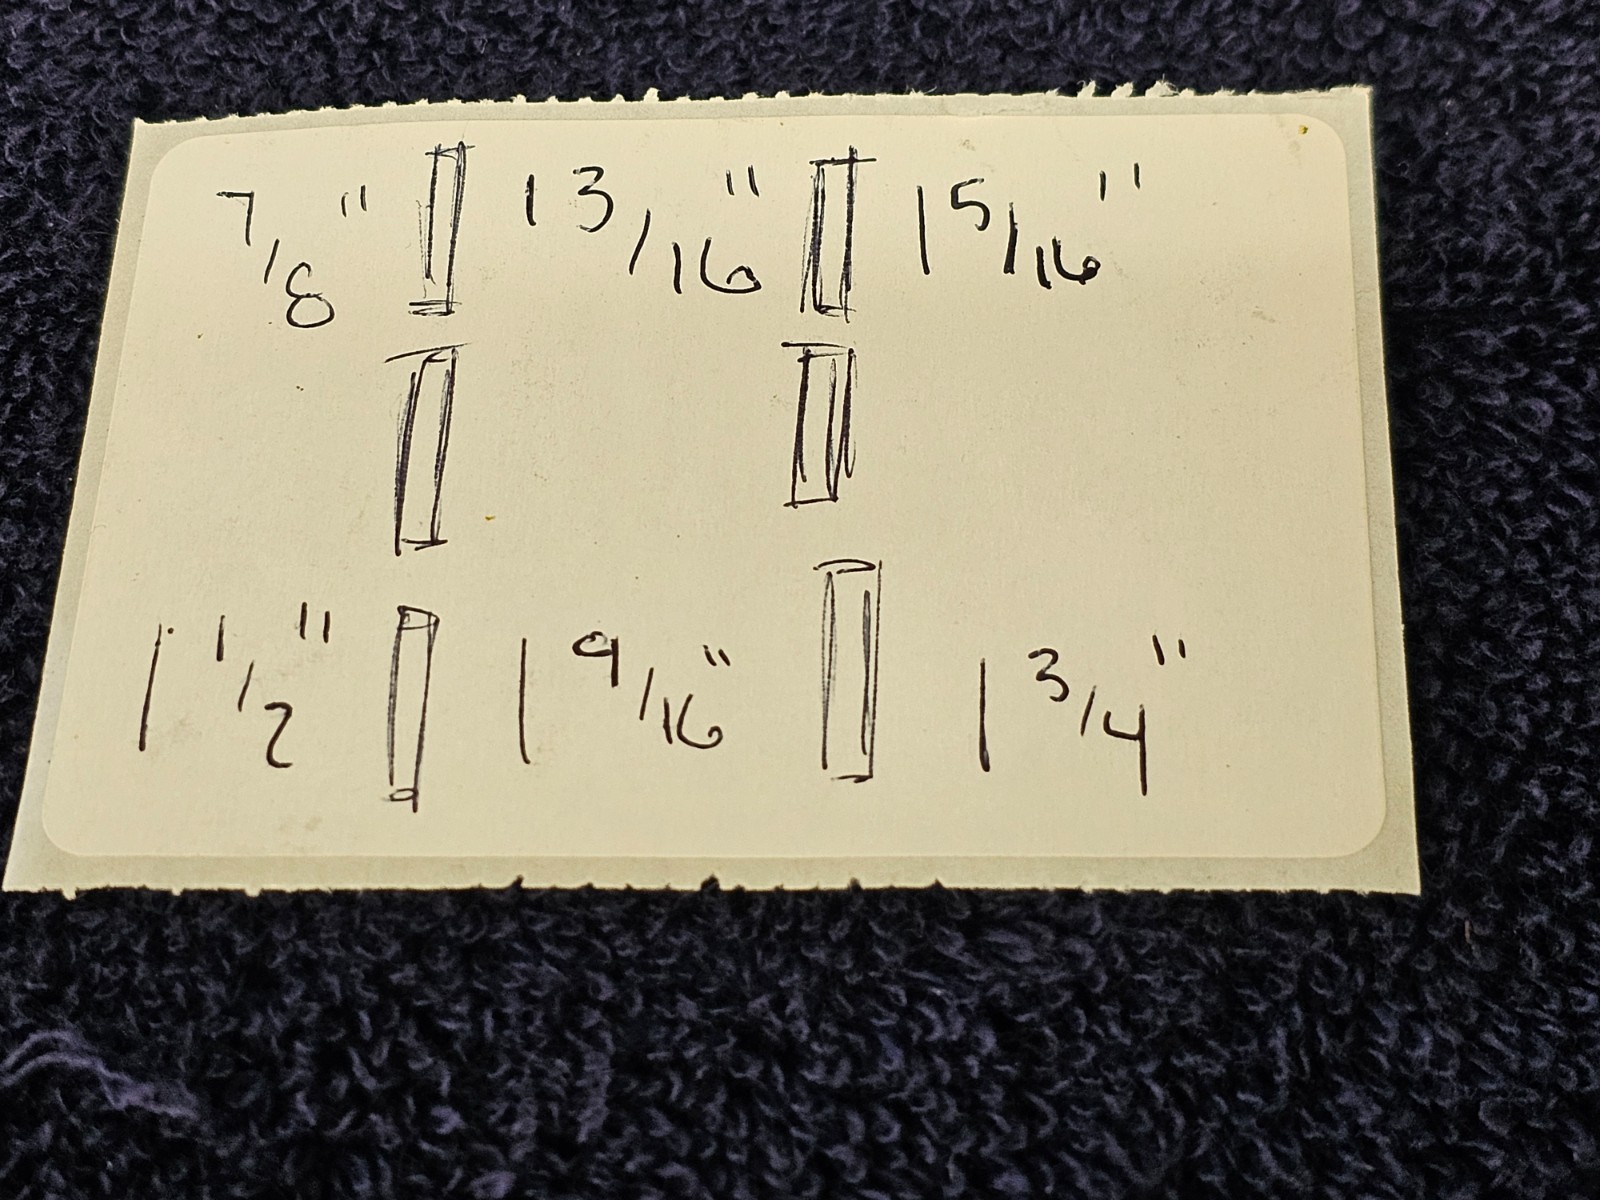 7/8" 13/16" 15/16"
1 1/2" 1 9/16" 1 3/4"